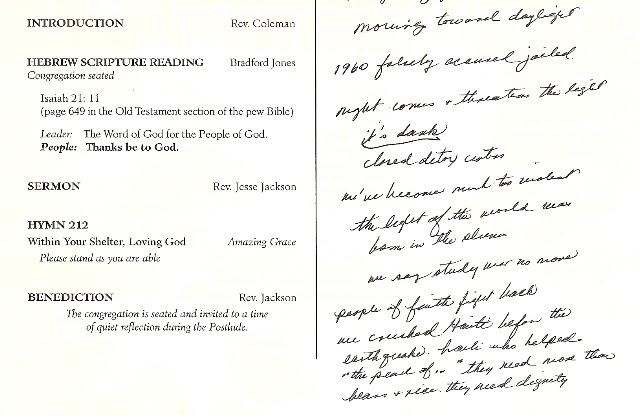 INTRODUCTION Rev. Coleman
HEBREW SCRIPTURE READING Bradford Jones
Congregation seated
Isaiah 21: 11
(page 649 in the Old Testament section of the pew Bible)
Leader: The Word of God for the People of God.
People: Thanks be to God.
SERMON Rev. Jesse Jackson
HYMN 212
Within Your Shelter, Loving God Amazing Grace
Please stand as you are able
BENEDICTION Rev. Jackson
The congregation is seated and invited to a time
of quiet reflection during the Postlude.
morning toward daylight
1960 falsely accused jailed
night comes + threatens the light
it's dark
closed detox
we've become much too violent
the light of the world was
born in the slum
we say study war no more
people of faith fight back
we crushed Haiti before the
earthquake. who helped.
"the pearl of.." they need more than
beans + rice. they need dignity